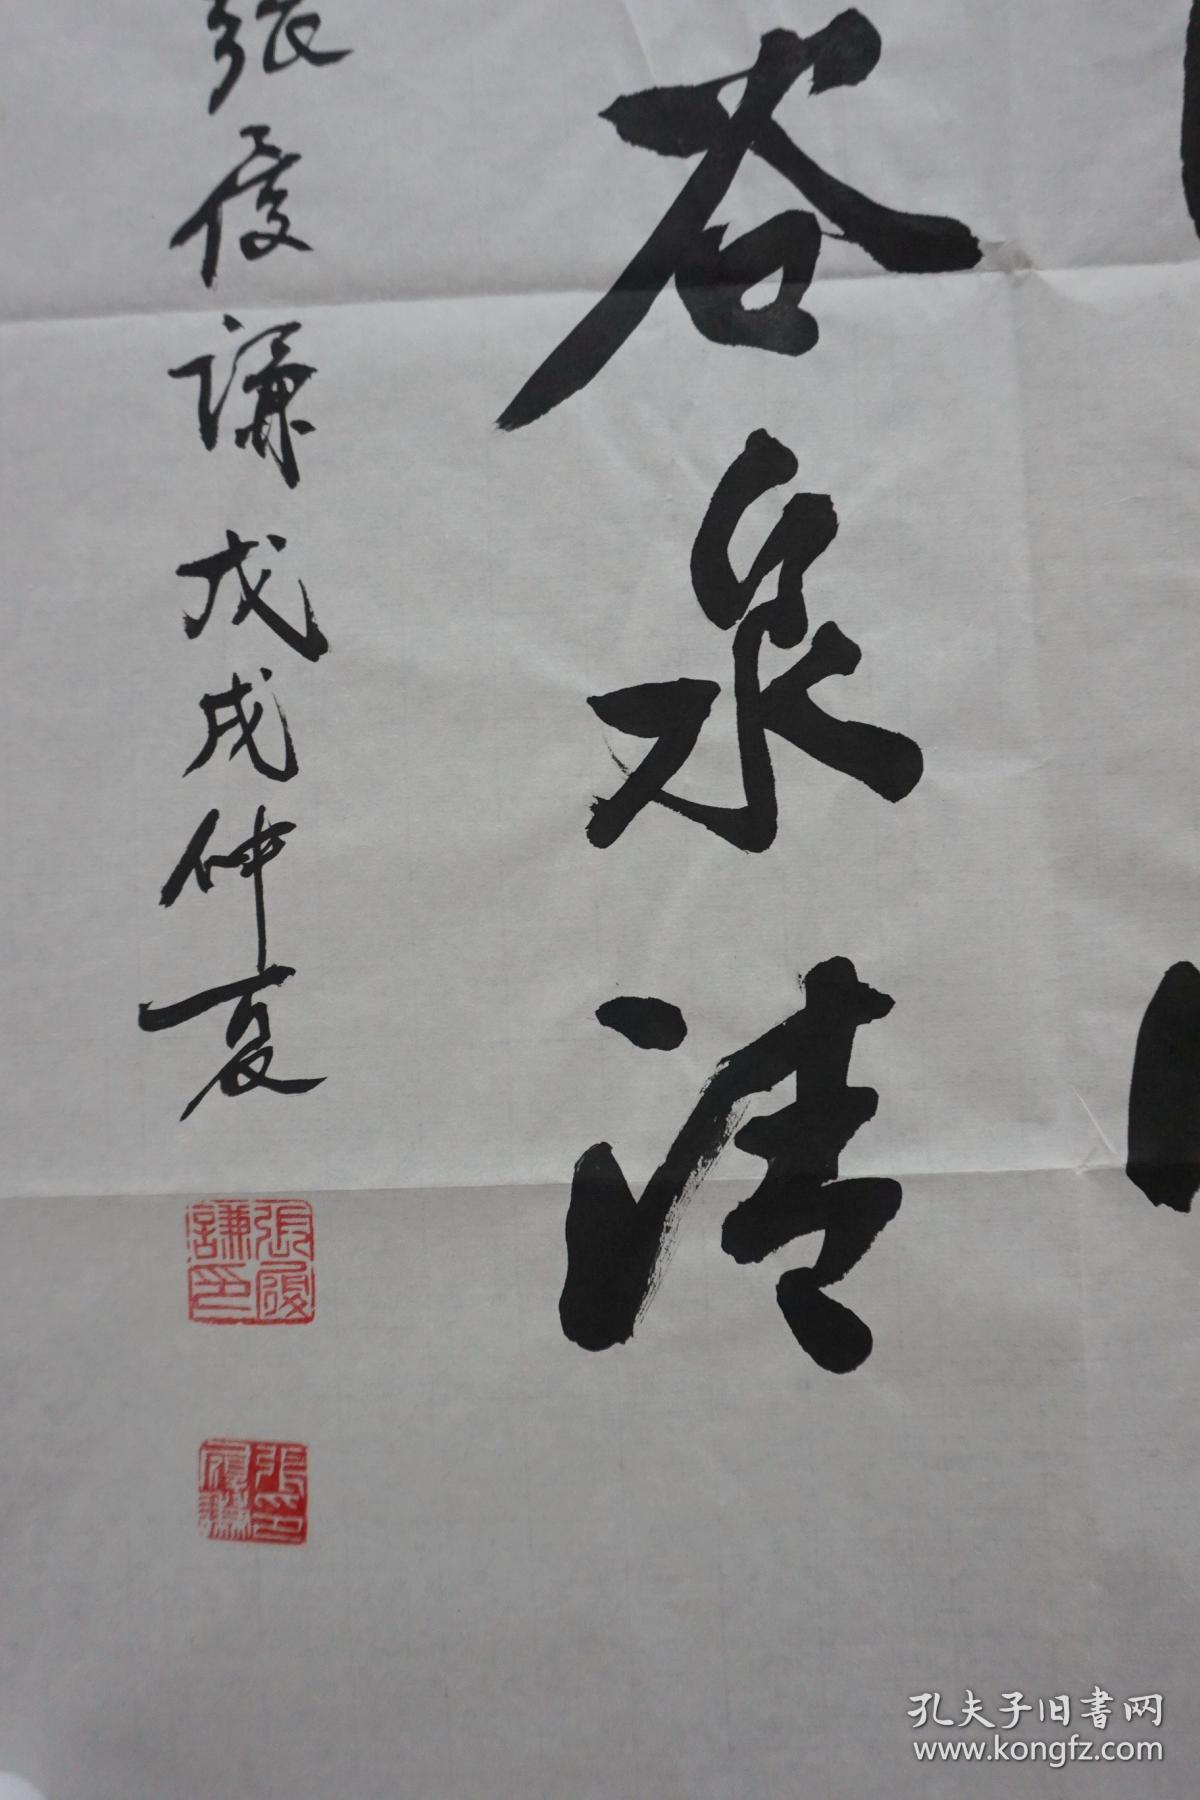 谷泉清
張俊謙戊戌仲夏
張俊謙印
張印俊謙
孔夫子旧書网
www.kongfz.com